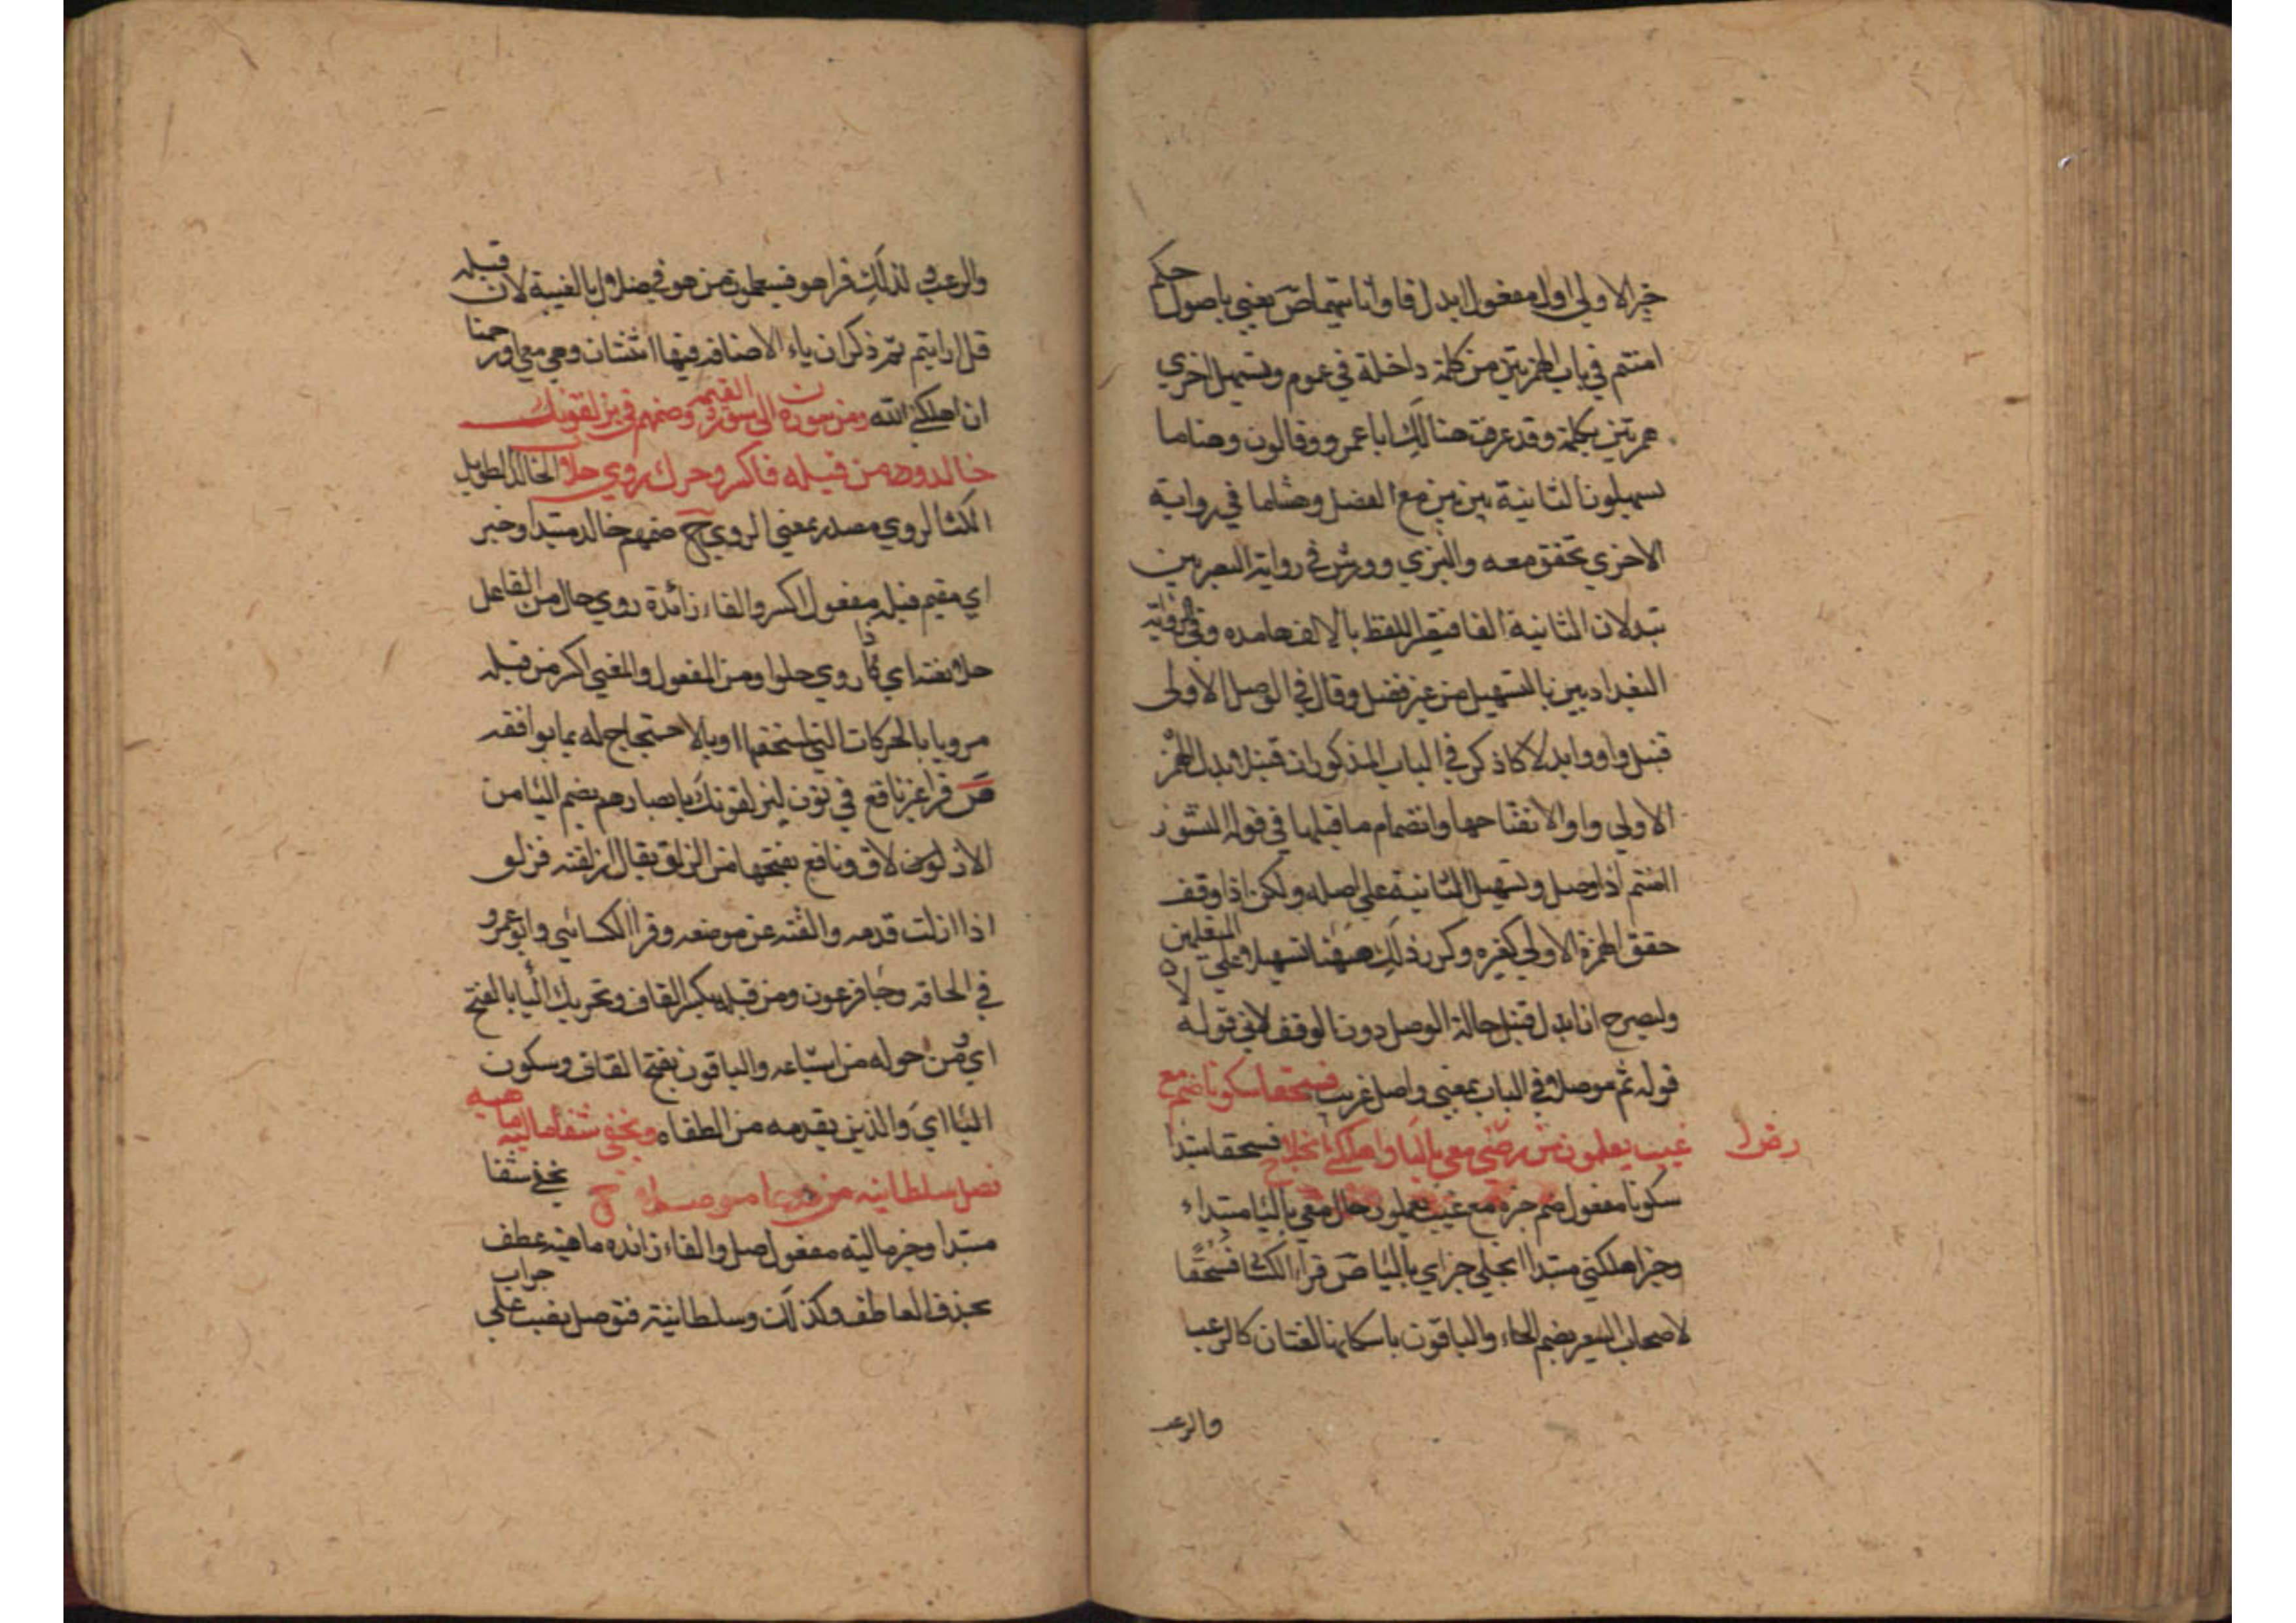 خبر الاولي اول مفعول ابدل قا واتا تتيما ص يعني باصول حكم
امنتم في باب الهمزتين من كلمة داخلة في عموم وتسهيل اخري
همزتين بكلمة وقد عرفت هنالك ابا عمرو وقالون وهناما
تسهيلون الثانية بين بين مع الفصل وهشاما في رواية
الاخري تحقق معه والبزي وورش في رواية البصريين
تبدلان الثانية الفا فيقرا اللفظ بالالف ممدودة وفي رواية
البغداديين بالتسهيل من غير فصل وقال في الوصل الاولي
قنبل واوا وابدلا كا ذكر في الباب المذكور ان قنبل يبدل الهمز
الاولي واوا لانفتاحها وانضمام ما قبلها في قوله النشور
امنتم اذا وصل وتسهيل الثانية علي اصله ولكن اذا وقف
حقق الهمزة الاولي كغيره وكرر ذلك ههنا تسهيلا علي المتعلمين
وليصرح ان ابدل قنبل حالة الوصل دون الوقف لان في قوله
قوله ثم موصلا في الباب بمعني واصل غريب فسحقا سكونا ضم مع
غيب يعلمون من رض معي باليا واهلكني انجلا فسحقا مبتدا
رض
سكونا مفعول ضم خبره مع غيب يعلمون حال معي باليا مبتداء
وخبر اهلكني مبتدا انجلي خبر اي باليا ص قرا الكسا فسحقا
لاصحاب السعير بضم الحاء والباقون باسكانها لغتان كالرعب
والرعب
والرعب لذلك قرا هو فسيعلمون من هو في ضلال بالغيبة لان قبله
قل ارايتم ثم ذكر ان ياء الاضافة فيها اثنتان وهي معي اورحمنا
ان اهلكني الله ومن سورة ن الي سورة القيمه وضمهم في يزلقونك
خالد ومن قبله فاكسر وحرك روي حلا الخالد الطويل
المكث الروي مصدر بمعني الروي ح ضمهم خالد مبتدا وخبر
اي مقيم قبله مفعول اكسر والفاء زائدة روي حال من الفاعل
حلا نعته اي ذا روي حلوا ومن المفعول والمعني اكسر من قبله
مرويا بالحركات التي استحقها او بالاحتجاج له بما يوافقه
ص قرا غير نافع في نون ليزلقونك بابصارهم بضم اليا من
الازلاق ونافع بفتحها من الزلق يقال ازلقته فزلق
اذا ازلت قدمه والقته عن موضعه وقرا الكسائي وابو عمرو
في الحاقة وجا فرعون ومن قبله بكسر القاف وتحريك اليا بالفتح
اي من حوله من اشياعه والباقون بفتح القاف وسكون
اليا اي والذين يقدمه من الطغاه ويخفي شفا ماليه ماهيه
فصل سلطانيه من دون ها موصلا ح يخفي شفا
مبتدا وخبر ماليه مفعول صل والفاء زائده ماهيه عطف
بحذف العاطف وكذلك وسلطانيه فتوصل نصب علي جواب